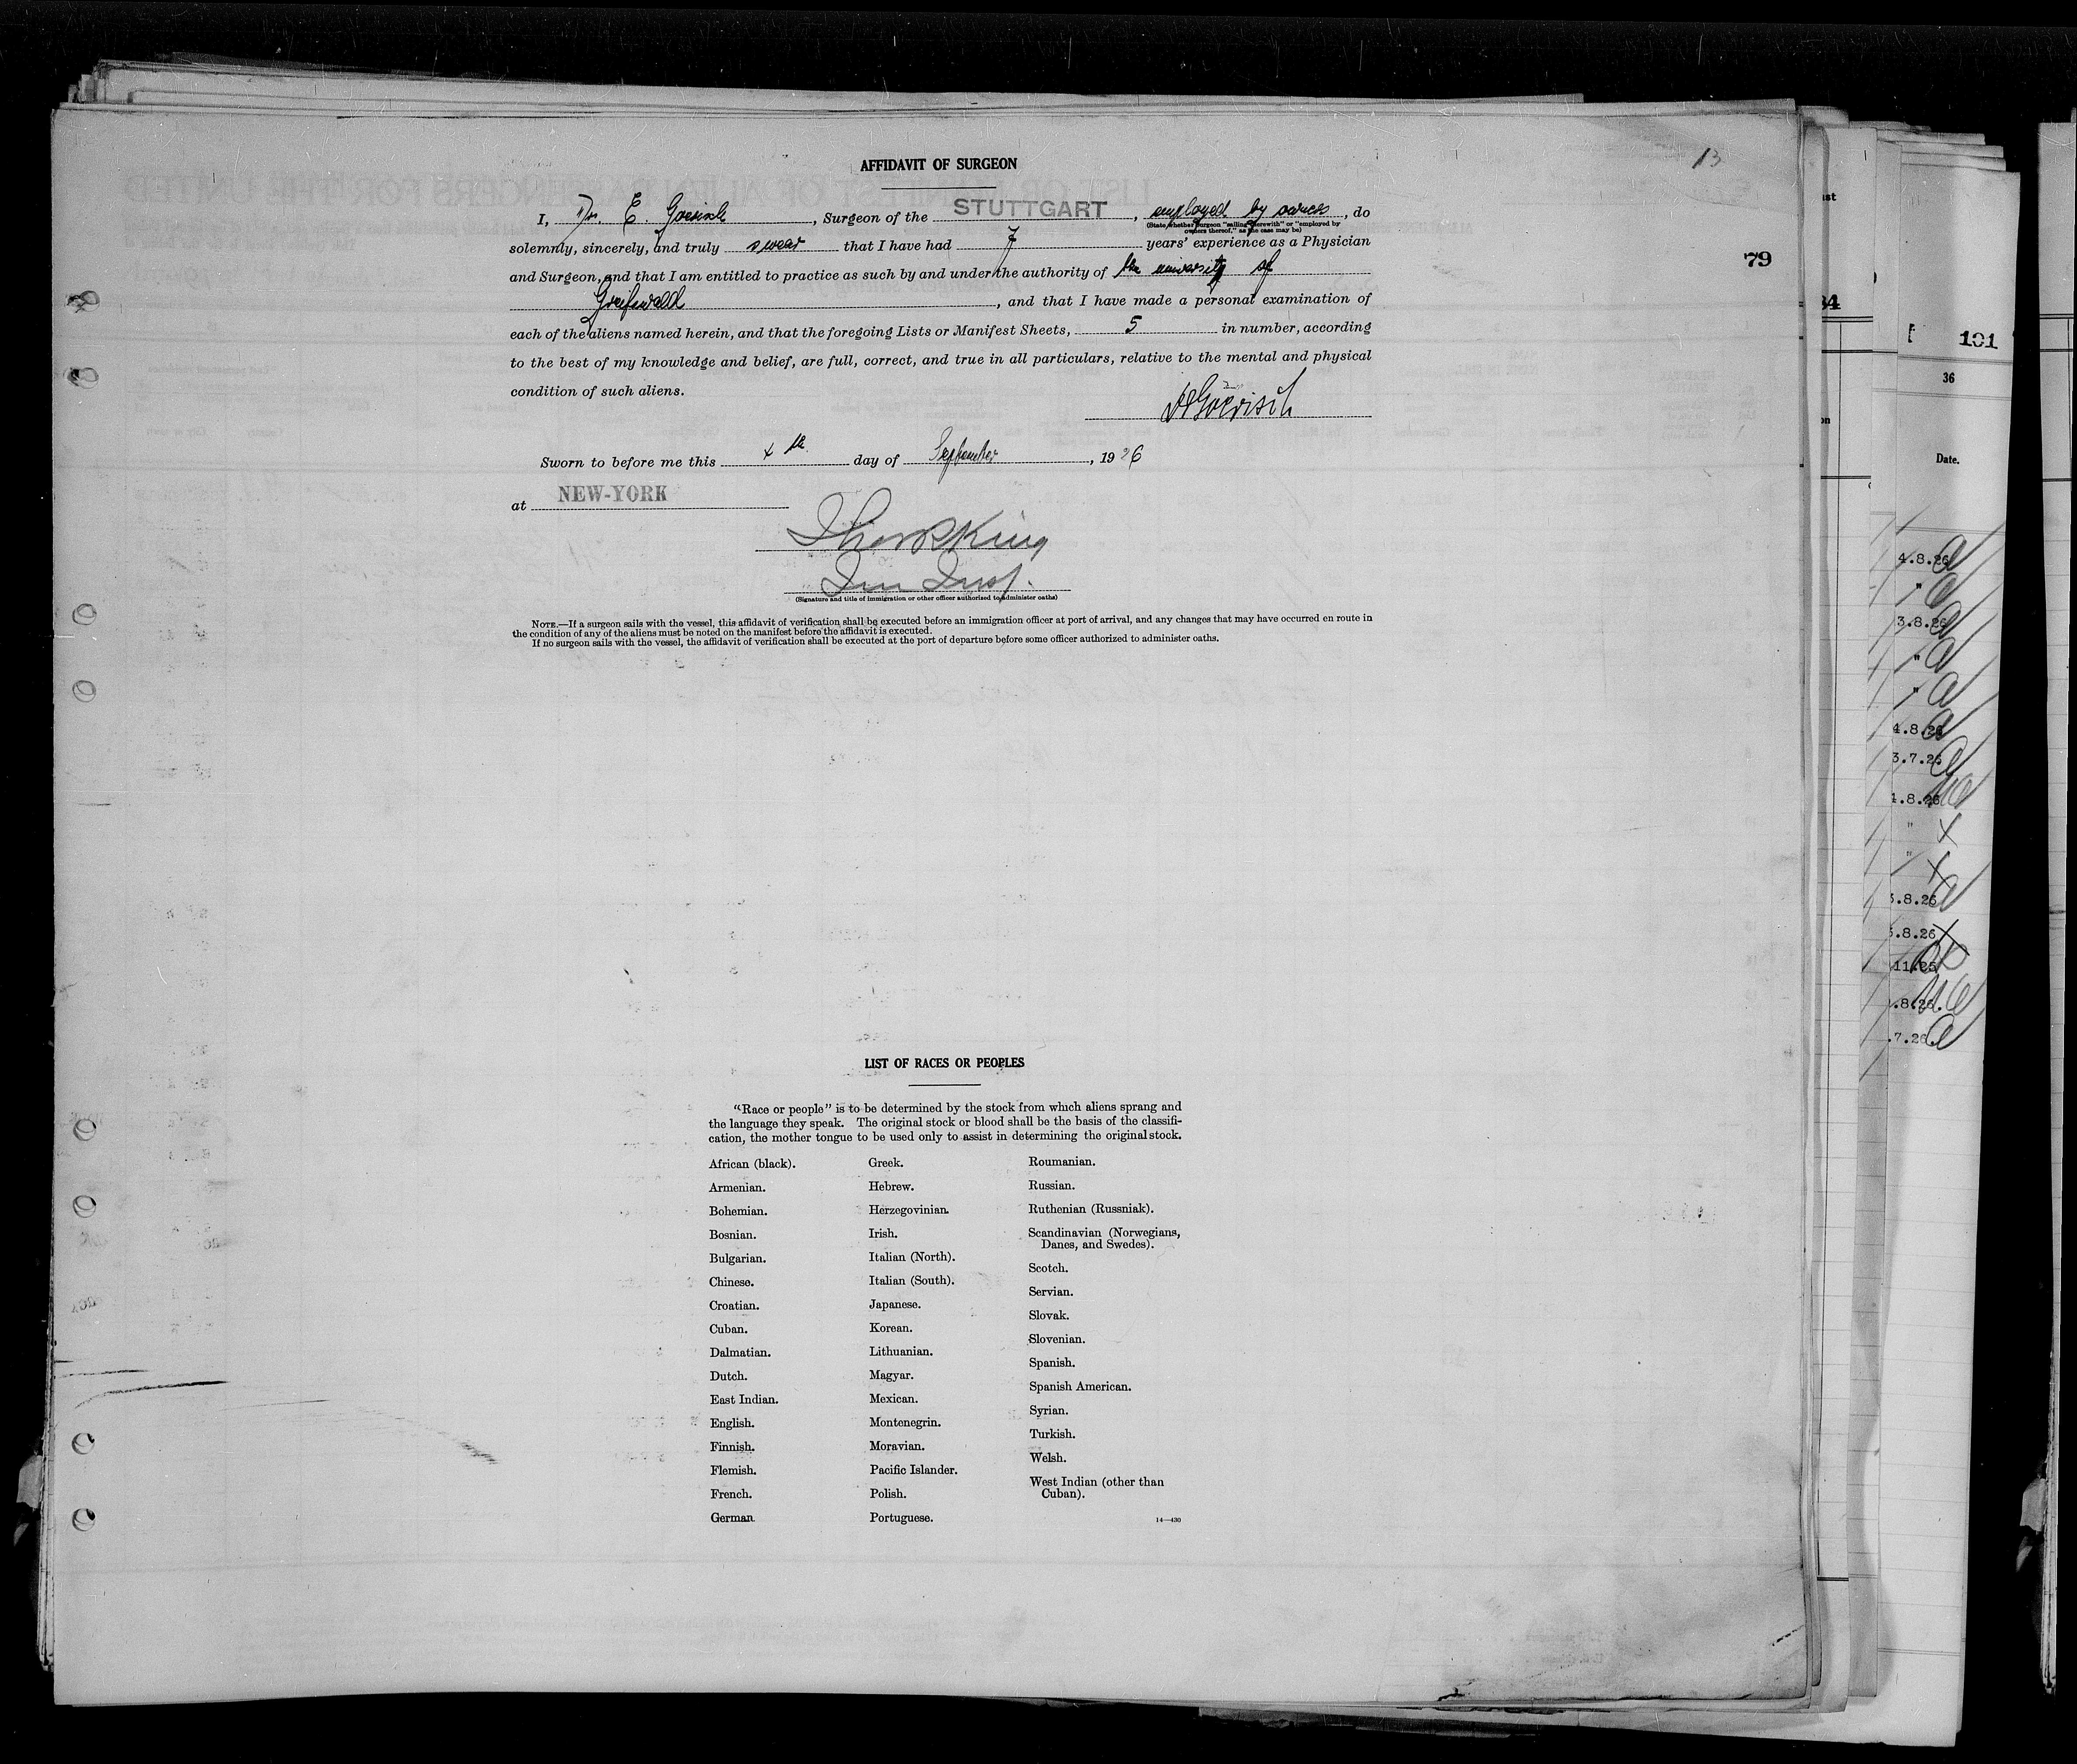 AFFIDAVIT OF SURGEON
13
I, Dr. E. Goerisch, Surgeon of the STUTTGART, employed by owners, do
(State whether Surgeon "sailing therewith" or "employed by
owners thereof," as the case may be)
solemnly, sincerely, and truly swear that I have had 7 years' experience as a Physician
and Surgeon, and that I am entitled to practice as such by and under the authority of the university of
Greifswald, and that I have made a personal examination of
each of the aliens named herein, and that the foregoing Lists or Manifest Sheets, 5 in number, according
to the best of my knowledge and belief, are full, correct, and true in all particulars, relative to the mental and physical
condition of such aliens.
Sworn to before me this th day of September, 1926
at NEW-YORK
King
Imm Insp.
(Signature and title of immigration or other officer authorized to administer oaths)
NOTE.—If a surgeon sails with the vessel, this affidavit of verification shall be executed before an immigration officer at port of arrival, and any changes that may have occurred en route in
the condition of any of the aliens must be noted on the manifest before the affidavit is executed.
If no surgeon sails with the vessel, the affidavit of verification shall be executed at the port of departure before some officer authorized to administer oaths.
LIST OF RACES OR PEOPLES
"Race or people" is to be determined by the stock from which aliens sprang and
the language they speak. The original stock or blood shall be the basis of the classifi-
cation, the mother tongue to be used only to assist in determining the original stock.
African (black).
Armenian.
Bohemian.
Bosnian.
Bulgarian.
Chinese.
Croatian.
Cuban.
Dalmatian.
Dutch.
East Indian.
English.
Finnish.
Flemish.
French.
German.
Greek.
Hebrew.
Herzegovinian.
Irish.
Italian (North).
Italian (South).
Japanese.
Korean.
Lithuanian.
Magyar.
Mexican.
Montenegrin.
Moravian.
Pacific Islander.
Polish.
Portuguese.
Roumanian.
Russian.
Ruthenian (Russniak).
Scandinavian (Norwegians,
Danes, and Swedes).
Scotch.
Servian.
Slovak.
Slovenian.
Spanish.
Spanish American.
Syrian.
Turkish.
Welsh.
West Indian (other than
Cuban).
14—430
79
101
36
Date.
4.8.26
"
3.8.26
"
"
4.8.26
3.7.26
4.8.26
"
"
3.8.26
.8.26
11.25
.8.26
.7.26